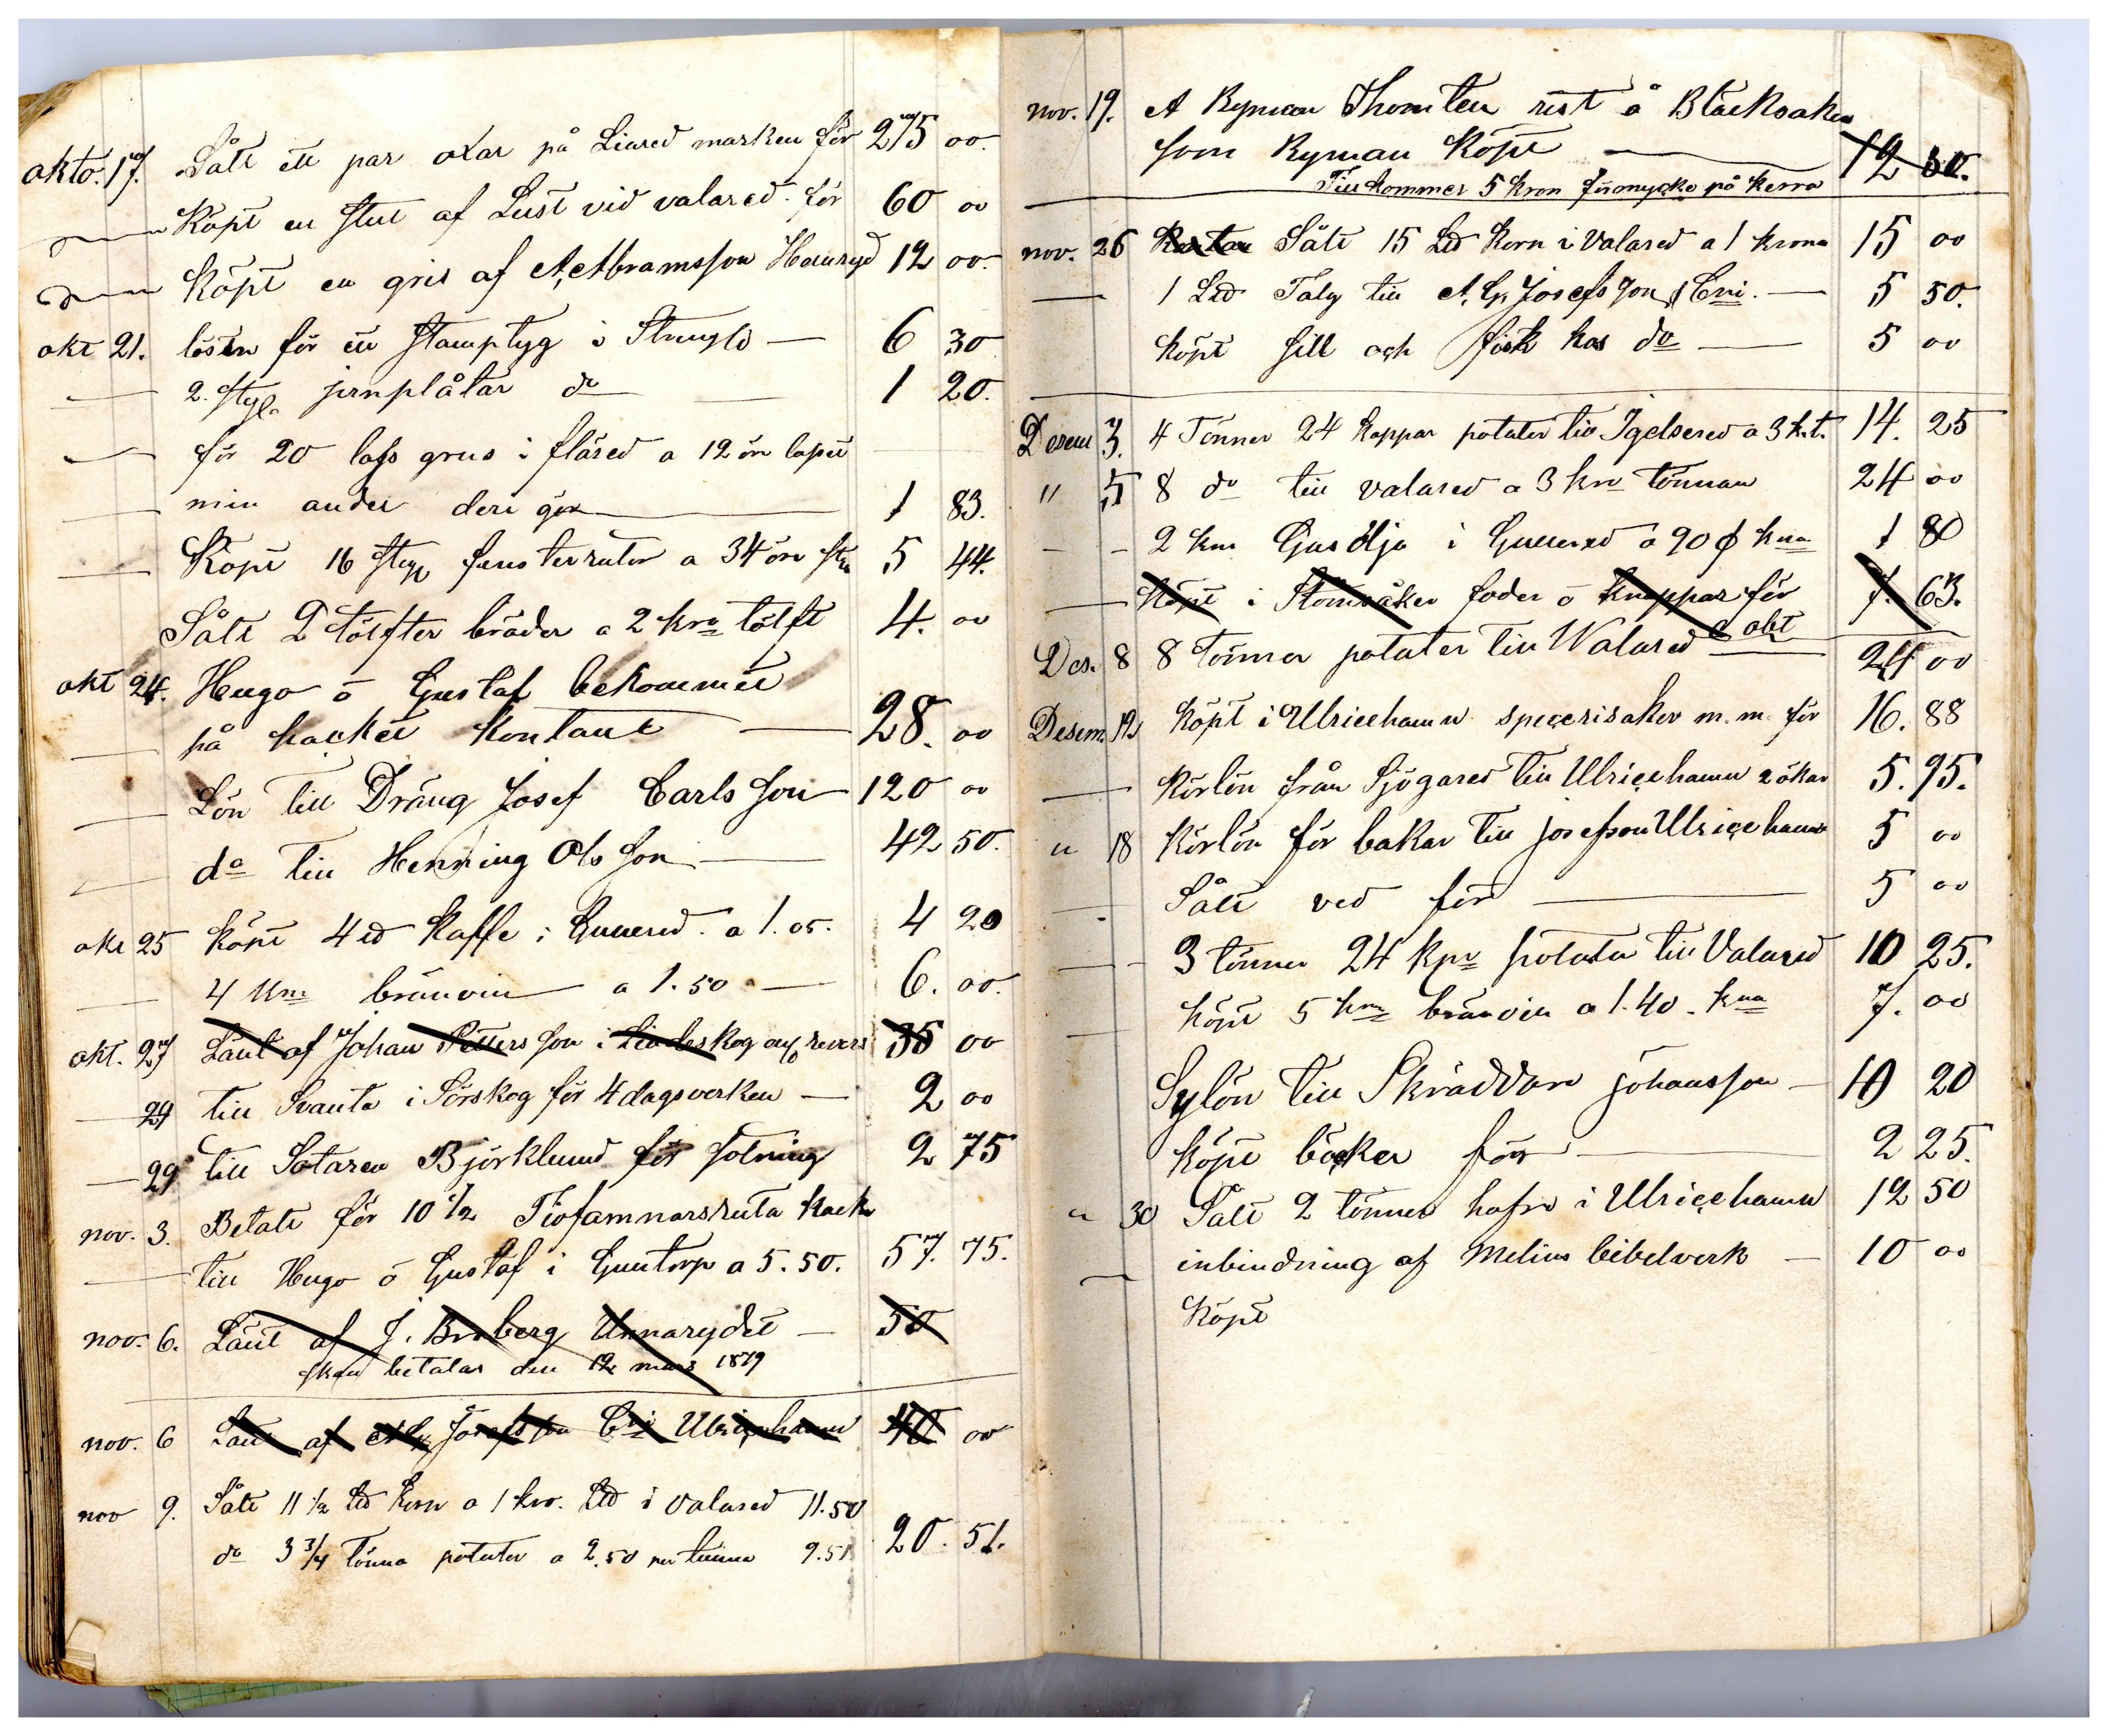 okto. 17. Sålt ett par oxar på Liared marken för 275 00.
Köpt en stut af Lust vid valared. för 60 00
Köpt en gris af A, Abramsson Hensryd 12 00.
okt 21. lösen för ett stamptyg i 6 30
2. styk jernplåtar do 1 20.
för 20 lass grus i flåsed a 12 öre lasset
min andel deri gör 1 83.
Köpt 16 styk fensterrutor a 34 öre st 5 44.
Sålt 2 tölfter bräder a 2 kro tölft 4. 00
okt 24. Hugo o Gustaf bekommit
på hacket kontant 28. 00
Lön till Dräng Josef Carlsson 120 00
do till Henning Olsson 42 50.
okt 25 köpt 4 kaffe i Gullered. a 1.05. 4 20
4 knr bränvin a 1.50 6. 00.
okt. 27 Lånt af Johan Petterson i Lindeskog revers 35 00
29 till Svante i Sörskog för 4 dagsverken 2 00
29 till Sotaren Björklund för sotning 2 75
nov. 3. Betalt för 10 1/2 Tiofamnarsruta hack
till Hugo o Gustaf i Guntorp a 5.50. 57. 75.
nov. 6. Lånt af J. Broberg Unnarydet 50
skall betalas den 12 mars 1879
nov. 6 Lånt af A. G. Josefsson Cni Ulricehamn 40 00
nov 9. Sålt 11 1/2 Lld korn a 1 kro. Lld i valared 11.50
do 3 3/4 tönna potater a 2.50 per tunna 9.51 20. 51.
nov. 19. A Ryman Thomten rest å Blecksaker
som Ryman Köpt 12 30.
Till kommer 5 kron förmycke på kerra
nov. 26 Sålt 15 Lld korn i Valared a 1 krona 15 00
1 Lld Talg till A. G. Josefsson & Cni. 5 50.
köpt sill och fisk hos do 5 00
Desem 3. 4 Tönner 24 kappar potater till Igelsered a 3 k.t. 14. 25
" 5 8 do till valared a 3 kro tönnan 24 00
2 knr Gasolja i Gullered a 90 ø kna 1 80
Köpt i Stömsåker foder o knappar för 7. 63.
Des. 8 8 tönner potater till Walared a okt 24 00
Desem. 12 köpt i Ulricehamn specerisaker m.m. för 16. 88
körlön från Sjögared till Ulricehamn 2 ökar 5. 95.
" 18 körlön för bakar till josefson Ulricehamn 5 00
Sålt ved för 5 00
3 tönner 24 kpr potater till Valared 10 25.
köpt 5 knr bränvin a 1.40. kna 7. 00
Sylön till Skräddare johansson 10 20
köpt böcker för 2 25.
" 30 Sålt 2 tönner hafre i Ulricehamn 12 50
inbindning af Melins bibelverk 10 00
köpt